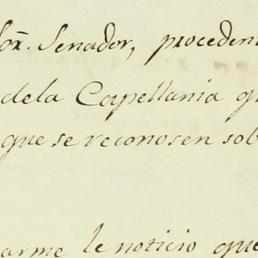 or. Senador, proceden
dela Capellania q
que se reconosen sob
arme le noticio que